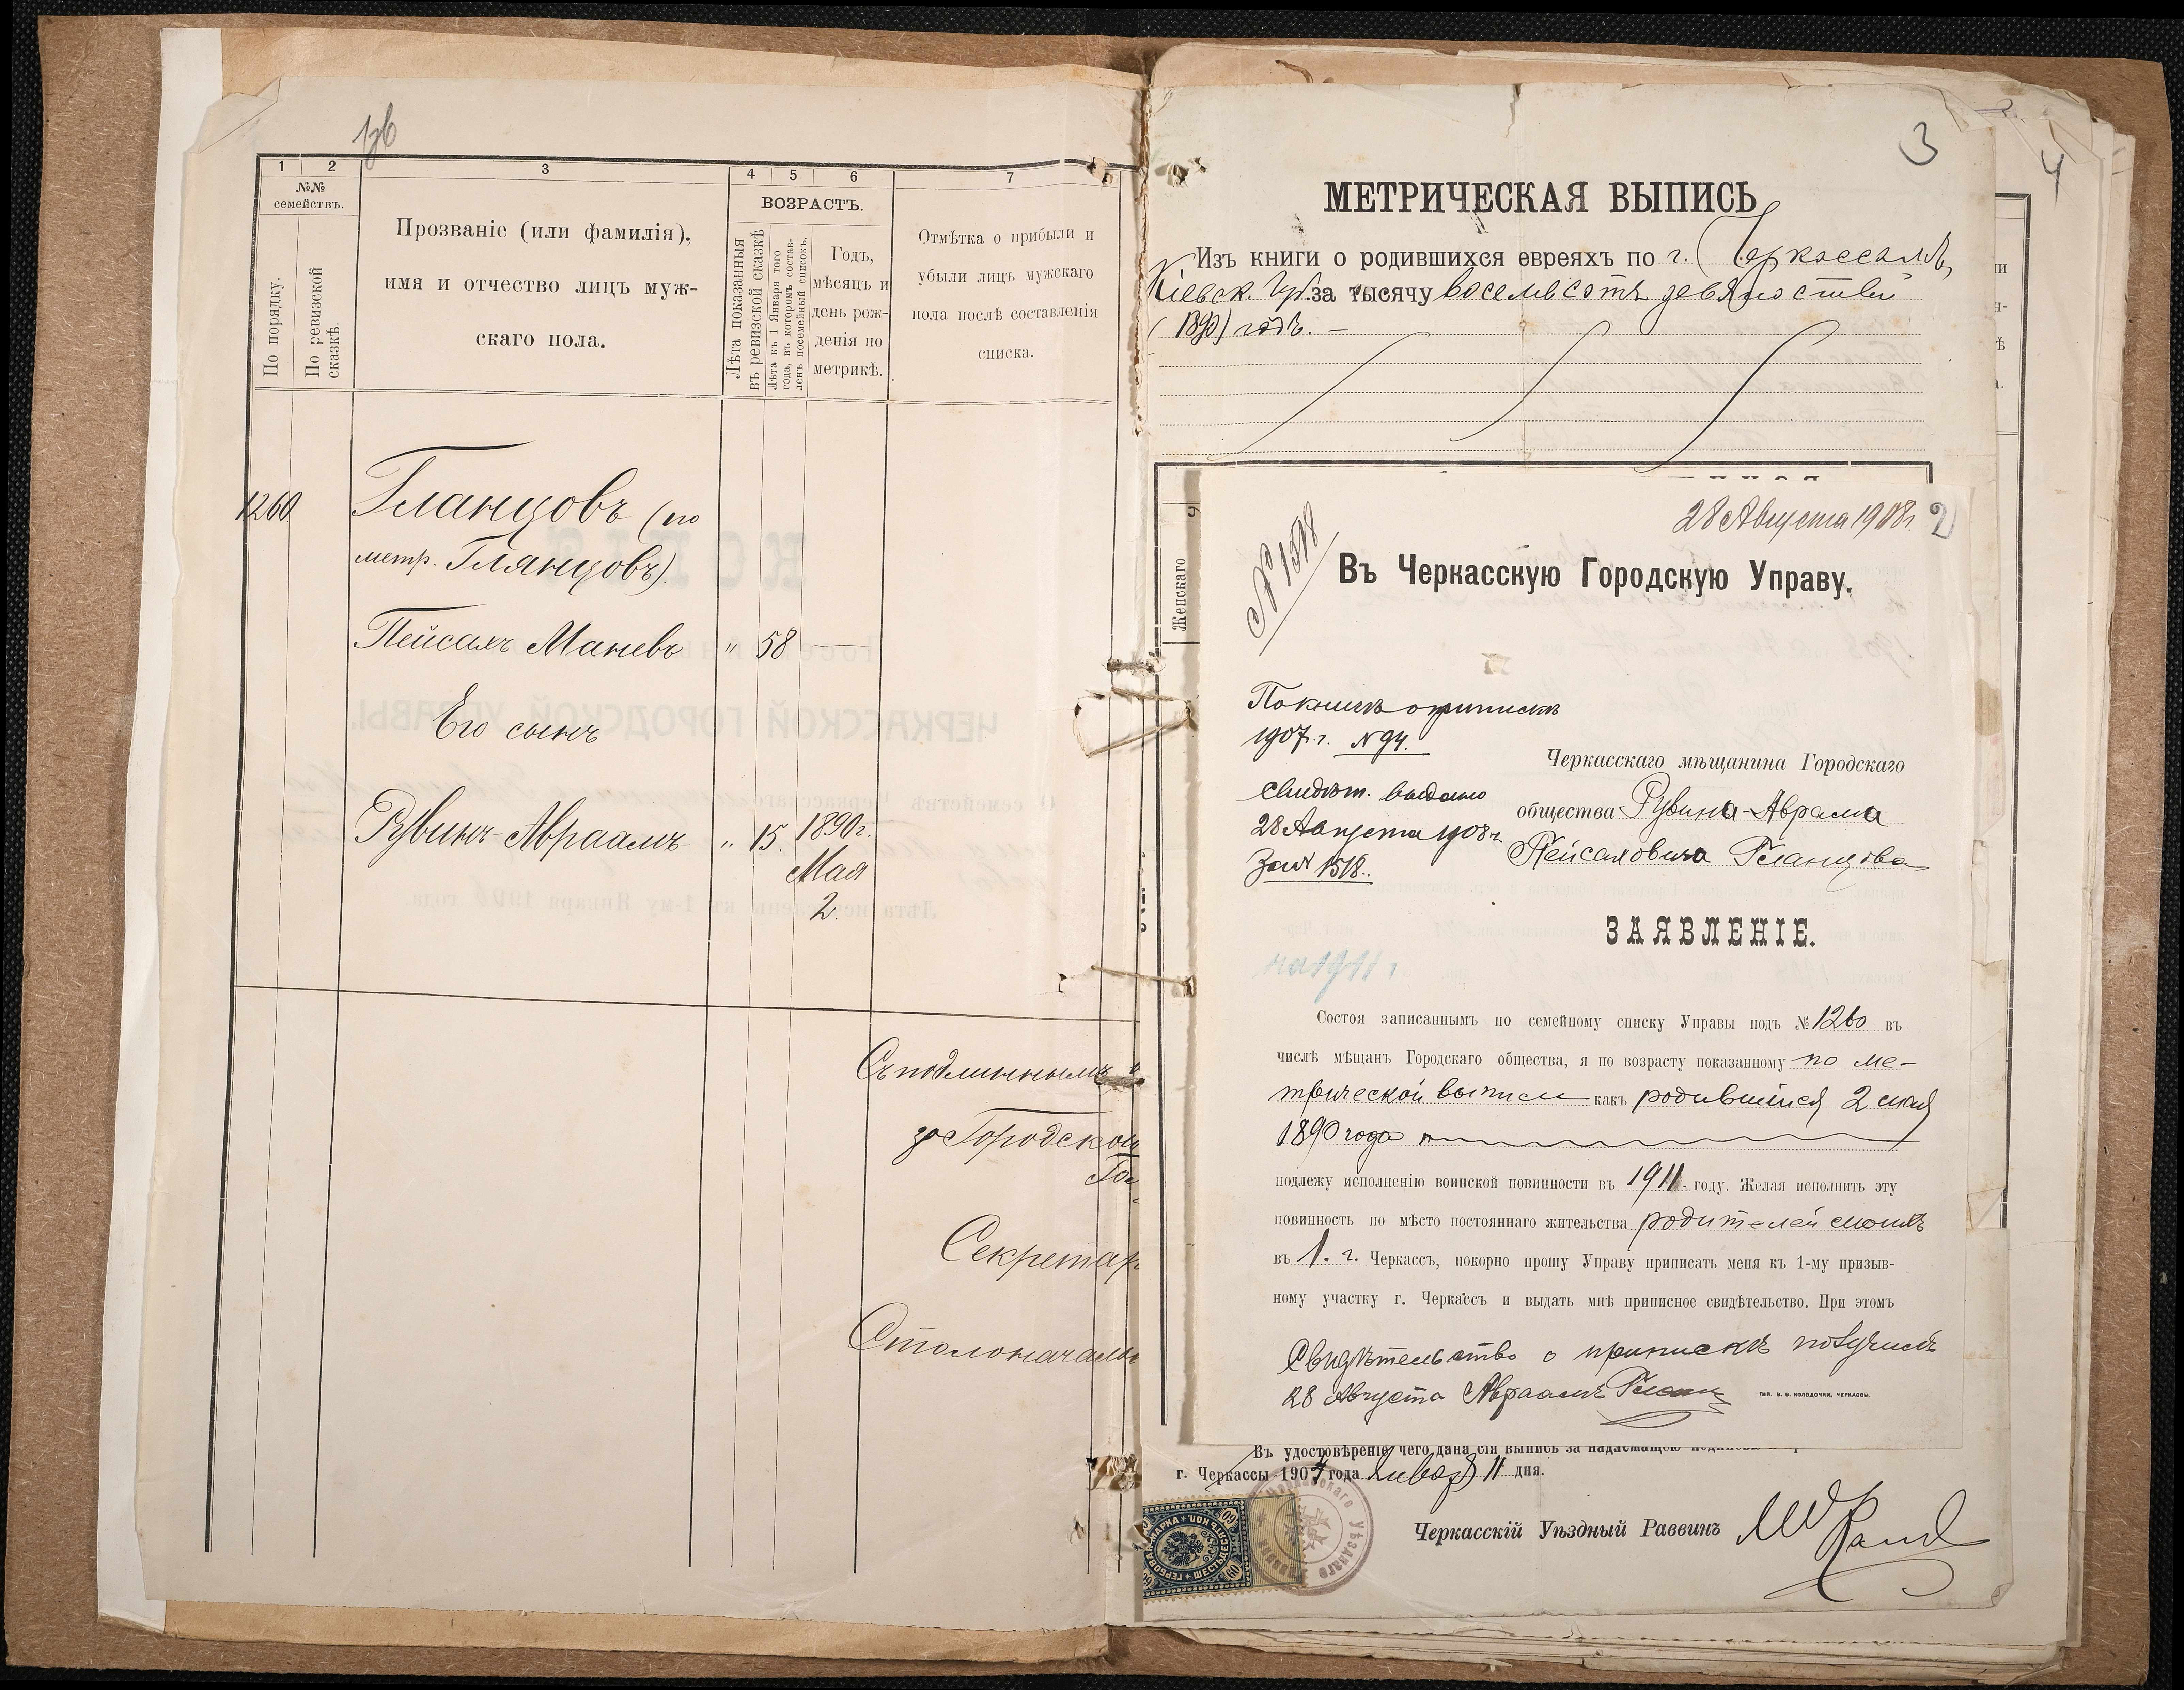 1
2
3
4
5
6
7
№№
семействъ.
По порядку.
По ревизской
сказкѣ.
Прозваніе (или фамилія),
имя и отчество лицъ муж-
скаго пола.
ВОЗРАСТЪ.
Лѣта показанныя
въ ревизской сказкѣ
Лѣта къ 1 Января того
года, въ которомъ состав-
ленъ посемейный списокъ.
Годъ,
мѣсяцъ и
день рож-
денія по
метрикѣ.
Отмѣтка о прибыли и
убыли лицъ мужскаго
пола послѣ составленія
списка.
1260
Гланцовъ (по
метр. Глянцовъ).
Пейсахъ Маневъ " 58 —
Его сынъ
Рувинъ-Авраамъ " 15. 1890 г.
Мая
2.
Съ подлиннымъ
Городской
Секретар
Столоначаль
3
4
МЕТРИЧЕСКАЯ ВЫПИСЬ
Изъ книги о родившихся евреяхъ по г. Черкассамъ,
Кіевск. Губ. за тысячу восемьсотъ девяностый
(1890) годъ. —
Женскаго
28 Августа 1908 г. 2
№ 1518
Въ Черкасскую Городскую Управу.
По книгѣ о припискѣ
1907 г. № 94.
Свидѣт. выдано
28 Августа 1908 г.
За № 1518.
Черкасскаго мѣщанина Городскаго
общества Рувина-Аврама
Пейсаховича Гланцова
ЗАЯВЛЕНІЕ.
на 1911 г
Состоя записаннымъ по семейному списку Управы подъ № 1260 въ
числѣ мѣщанъ Городскаго общества, я по возрасту показанному по ме-
трической выписи какъ родившійся 2 мая
1890 года
подлежу исполненію воинской повинности въ 1911. году. Желая исполнить эту
повинность по мѣсто постояннаго жительства родителей моихъ
въ 1. г. Черкассъ, покорно прошу Управу приписать меня къ 1-му призыв-
ному участку г. Черкассъ и выдать мнѣ приписное свидѣтельство. При этомъ
Свидѣтельство о припискѣ получилъ
28 Августа Авраамъ Гланц
тип. В. В. Колодочки, Черкассы.
Въ удостовѣреніе чего дана сія выпись за надлежащею
г. Черкассы 1907 года Января 11 дня.
Черкасскій Уѣздный Раввинъ
ГЕРБОВАЯ МАРКА * ШЕСТЬДЕСЯТЪ КОП.
60